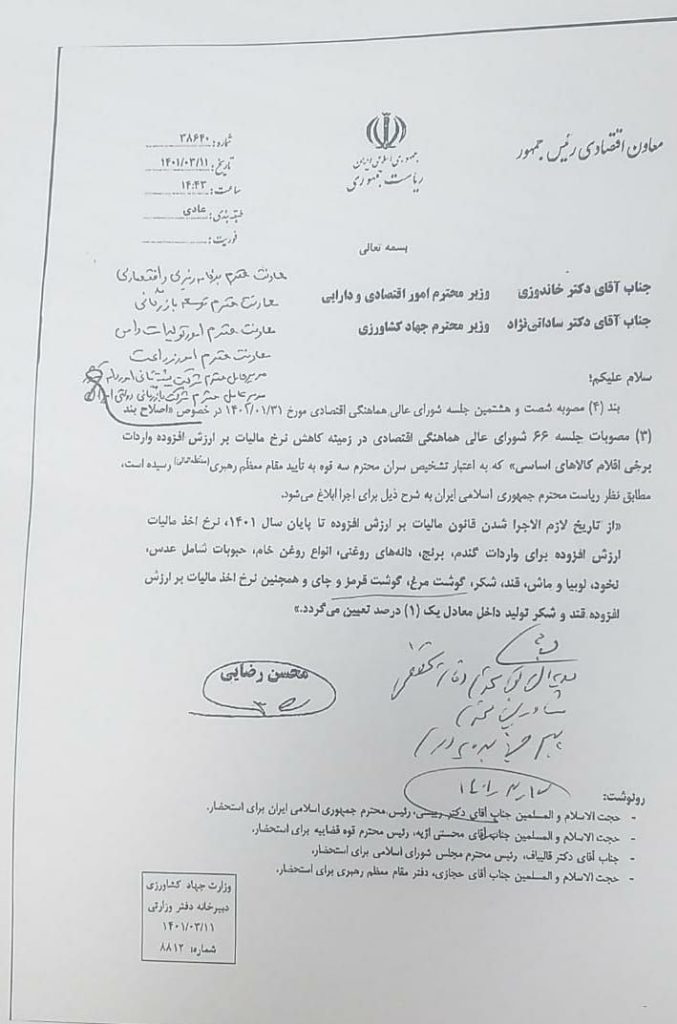 معاون اقتصادی رئیس جمهور
جمهوری اسلامی ایران
ریاست جمهوری
شماره: ۳۸۶۴۰
تاریخ: ۱۴۰۱/۰۳/۱۱
ساعت: ۱۴:۴۳
طبقه بندی: عادی
فوریت:
بسمه تعالی
معاونت محترم برنامه ریزی و اقتصادی
معاونت محترم توسعه بازرگانی
معاونت محترم امور تولیدات دامی
معاونت محترم امور زراعت
مدیرعامل محترم شرکت پشتیبانی امور دام کشور
مدیر عامل محترم شرکت بازرگانی دولتی ایران
جناب آقای دکتر خاندوزی وزیر محترم امور اقتصادی و دارایی
جناب آقای دکتر ساداتی‌نژاد وزیر محترم جهاد کشاورزی
سلام علیکم؛
بند (۴) مصوبه شصت و هشتمین جلسه شورای عالی هماهنگی اقتصادی مورخ ۱۴۰۱/۰۱/۳۱ در خصوص «اصلاح بند
(۳) مصوبات جلسه ۶۶ شورای عالی هماهنگی اقتصادی در زمینه کاهش نرخ مالیات بر ارزش افزوده واردات
برخی اقلام کالاهای اساسی» که به اعتبار تشخیص سران محترم سه قوه به تأیید مقام معظم رهبری (مدظله‌العالی) رسیده است،
مطابق نظر ریاست محترم جمهوری اسلامی ایران به شرح ذیل برای اجرا ابلاغ می‌شود.
«از تاریخ لازم الاجرا شدن قانون مالیات بر ارزش افزوده تا پایان سال ۱۴۰۱، نرخ اخذ مالیات
ارزش افزوده برای واردات گندم، برنج، دانه‌های روغنی، انواع روغن خام، حبوبات شامل عدس،
نخود، لوبیا و ماش، قند، شکر، گوشت مرغ، گوشت قرمز و چای و همچنین نرخ اخذ مالیات بر ارزش
افزوده قند و شکر تولید داخل معادل یک (۱) درصد تعیین می‌گردد.»
محسن رضایی
رونوشت:
- حجت الاسلام و المسلمین جناب آقای دکتر رییسی، رئیس محترم جمهوری اسلامی ایران برای استحضار.
- حجت الاسلام و المسلمین جناب آقای محسنی اژیه، رئیس محترم قوه قضاییه برای استحضار.
- جناب آقای دکتر قالیباف، رئیس محترم مجلس شورای اسلامی برای استحضار.
- حجت الاسلام و المسلمین جناب آقای حجازی، دفتر مقام معظم رهبری برای استحضار.
وزارت جهاد کشاورزی
دبیرخانه دفتر وزارتی
۱۴۰۱/۰۳/۱۱
شماره: ۸۸۱۲